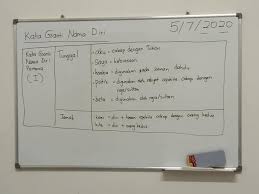 Kata Ganti Nama Diri
5/7/2020
Kata Ganti
Nama Diri
Pertama
(I)
Tunggal
- aku = cakap dengan Tuhan
- Saya =
- hamba = digunakan pada zaman dahulu
- patik = digunakan oleh rakyat apabila cakap dengan
raja/sultan
- beta = digunakan oleh raja/sultan
Jamak
- kami = diri + teman apabila cakap dengan orang kedua
- kita = diri + orang kedua